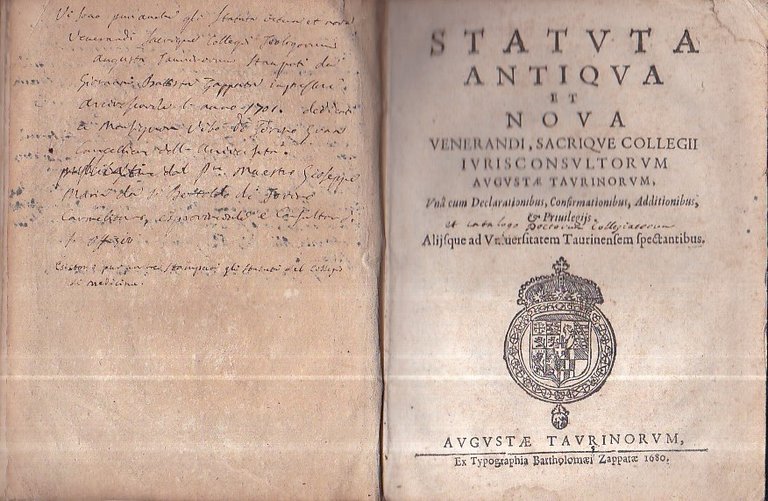 Vi sono pur anche gli Statuta antiqua et nova
Venerandi Sacrique Collegii Theologorum
Augustæ Taurinorum stampati da
Giovanni Battista Zappata impressore
arcivescovile l'anno 1701. dedicati
a Monsignore Vibò di Torino Gran
Cancelliere della Università.
publicati dal P. Maestro Gioseppe
Maria da di Torino
Carmelitano, e Consultore
S. Officio
stampati gli statuti del Collegio
di medicina.
STATVTA
ANTIQVA
ET
NOVA
VENERANDI, SACRIQVE COLLEGII
IVRISCONSVLTORVM
AVGVSTÆ TAVRINORVM,
Vnà cum Declarationibus, Confirmationibus, Additionibus,
& Priuilegijs.
et catalogo Doctorum Collegiatorum
Alijsque ad Vniuersitatem Taurinensem spectantibus.
AVGVSTÆ TAVRINORVM,
Ex Typographia Bartholomæi Zappatæ 1680.